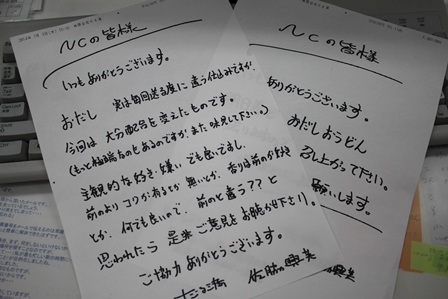 NCの皆様
いつもありがとうございます。
おだし 実は毎回送る度に違う仕込みですが
今回は大分配合を変えたものです。
(もっと極端なのもあるのですがまた味見して下さい。)
主観的な好き・嫌いでも良いですし、
前のよりコクが有るとか無いとか、香りは前のが好き
とか、何でも良いので、前のと違う??と
思われたら是非ご意見をお聴かせ下さい。
ご協力ありがとうございます。
佐藤の
NCの皆様
ありがとうございます。
おだしおうどん
召し上がって下さい。
願いします。